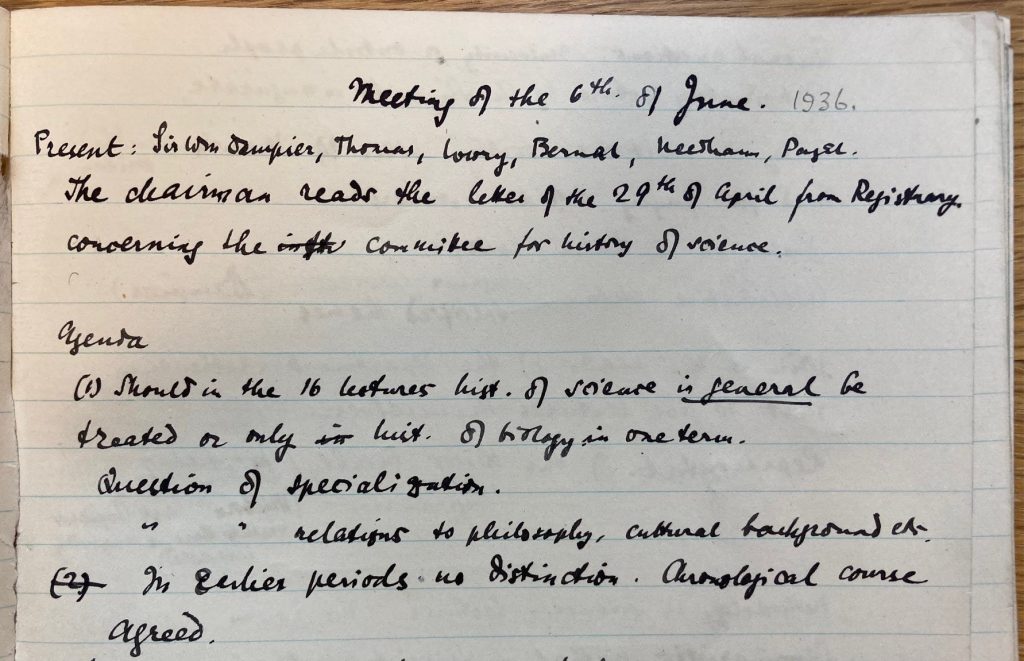 Meeting of the 6th. of June. 1936.
Present: Sir Wm Dampier, Thomas, Lowry, Bernal, Needham, Pagel.
The chairman reads the letter of the 29th of April from Registrary
concerning the committee for history of science.
Agenda
(1) Should in the 16 lectures hist. of science in general be
treated or only in hist. of biology in one term.
Question of specialization.
" " relations to philosophy, cultural background etc.
(2) In Earlier periods no distinction. Chronological course
agreed.